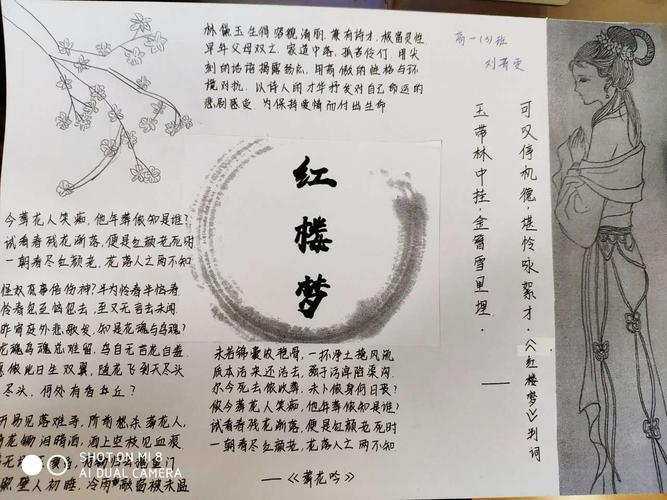 林黛玉生得容貌清丽，兼有诗才，极富灵性
早年父母双亡，家道中落，孤苦伶仃，用尖
刻的话语揭露丑恶，用高傲的性格与环
境对抗，以诗人的才华抒发对自己命运的
悲剧感受，为保持爱情而付出生命
高一(3)班
可叹停机德，堪怜咏絮才。《红楼梦》判词
玉带林中挂，金簪雪里埋．——
红楼梦
今葬花人笑痴，他年葬侬知是谁？
试看春残花渐落，便是红颜老死时
一朝春尽红颜老，花落人亡两不知
怪奴底事倍伤神？半为怜春半恼春
怜春忽至恼忽去，至又无言去未闻
昨宵庭外悲歌发，知是花魂与鸟魂？
花魂鸟魂总难留，鸟自无言花自羞
愿侬此日生双翼，随花飞到天尽头
尽头，何处有香丘？
开易见落难寻，阶前愁杀葬花人，
花锄泪暗洒，洒上空枝见血痕
照壁人初睡，冷雨敲窗被未温
未若锦囊收艳骨，一抔净土掩风流
质本洁来还洁去，强于污淖陷渠沟
尔今死去侬收葬，未卜侬身何日丧？
侬今葬花人笑痴，他年葬侬知是谁？
试看春残花渐落，便是红颜老死时
一朝春尽红颜老，花落人亡两不知
——《葬花吟》
SHOT ON MI 8
AI DUAL CAMERA